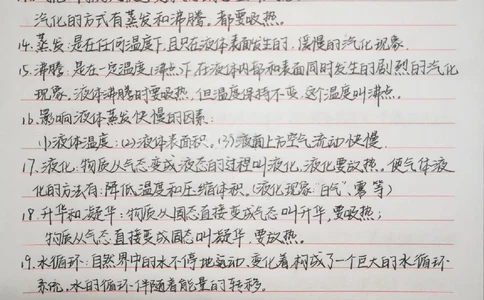 汽化的方式有蒸发和沸腾。都要吸热。
14.蒸发:是在任何温度下,且只在液体表面发生的,缓慢的汽化现象.
15.沸腾:是在一定温度(沸点)下,在液体内部和表面同时发生的剧烈的汽化
现象.液体沸腾时要吸热,但温度保持不变,这个温度叫沸点。
16.影响液体蒸发快慢的因素:
(1)液体温度;(2)液体表面积。(3)液面上方空气流动快慢.
17.液化:物质从气态变成液态的过程叫液化,液化要放热。使气体液
化的方法有:降低温度和压缩体积。(液化现象:"白气"、雾等)
18.升华和凝华:物质从固态直接变成气态叫升华,要吸热;
物质从气态直接变成固态叫凝华,要放热。
19.水循环:自然界中的水不停地运动、变化着,构成了一个巨大的水循环
系统。水的循环伴随着能量的转移。